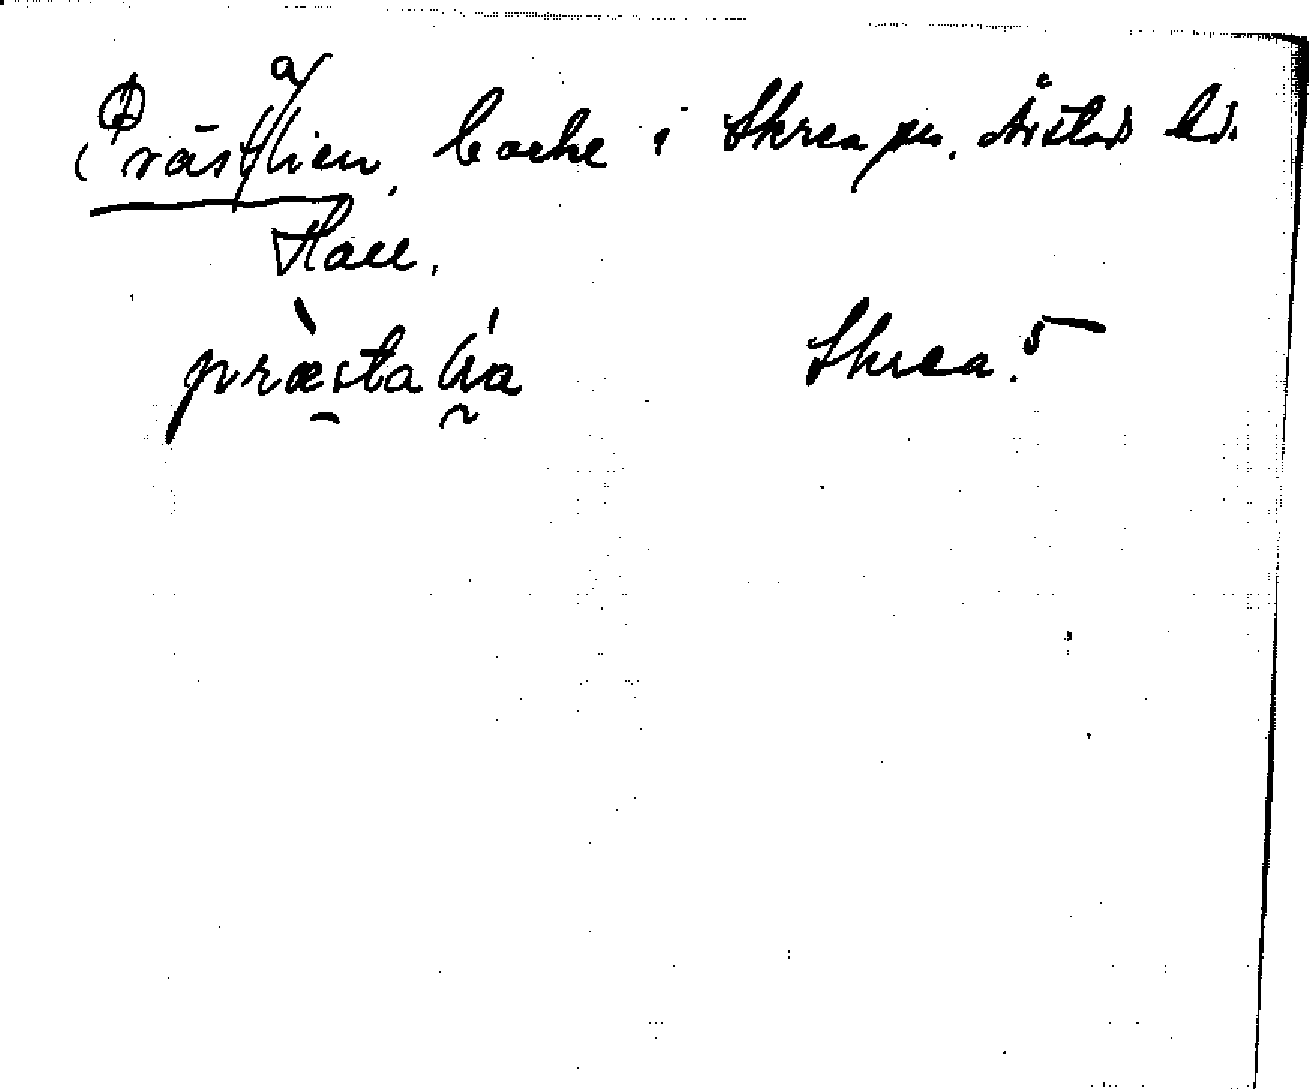 Prästalien, backe i Skrea sn. Årstads hd.
Hall.
præstalia Skrea. 5